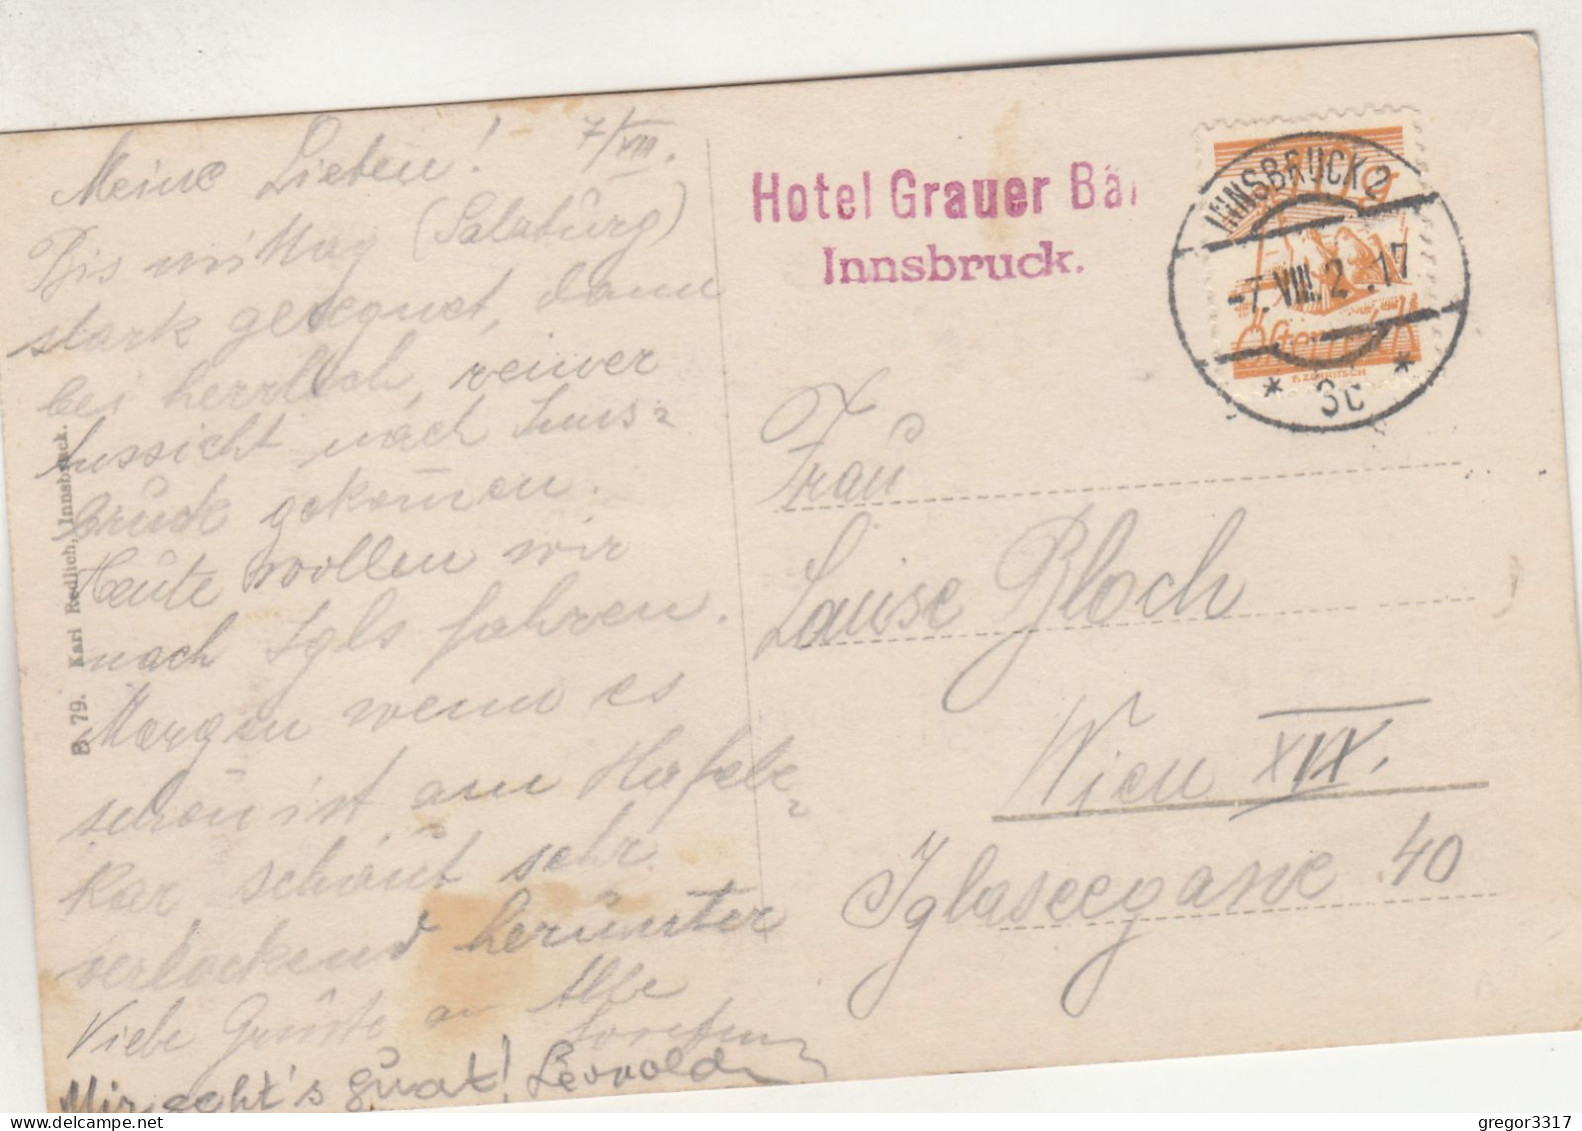 Meine Lieben! 7/VIII.
Bis mittag (Salzburg)
stark geregnet, dann
bei herrlich, reiner
Aussicht nach Inns-
bruck gekomen.
Heute wollen wir
nach Igls fahren.
Morgen wenn es
schön ist am Hafele-
kar schaut sehr
verlockend herunter
Viele Grüße an Alle
Mir geht's guat! Leopold
B. 79. Karl Redlich, Innsbruck.
Hotel Grauer Bär
Innsbruck.
INNSBRUCK 2
-7.VIII.2 .17
* 3c *
Österreich
Frau
Louise Bloch
Wien XIX.
Iglaseegasse 40
gregor3317